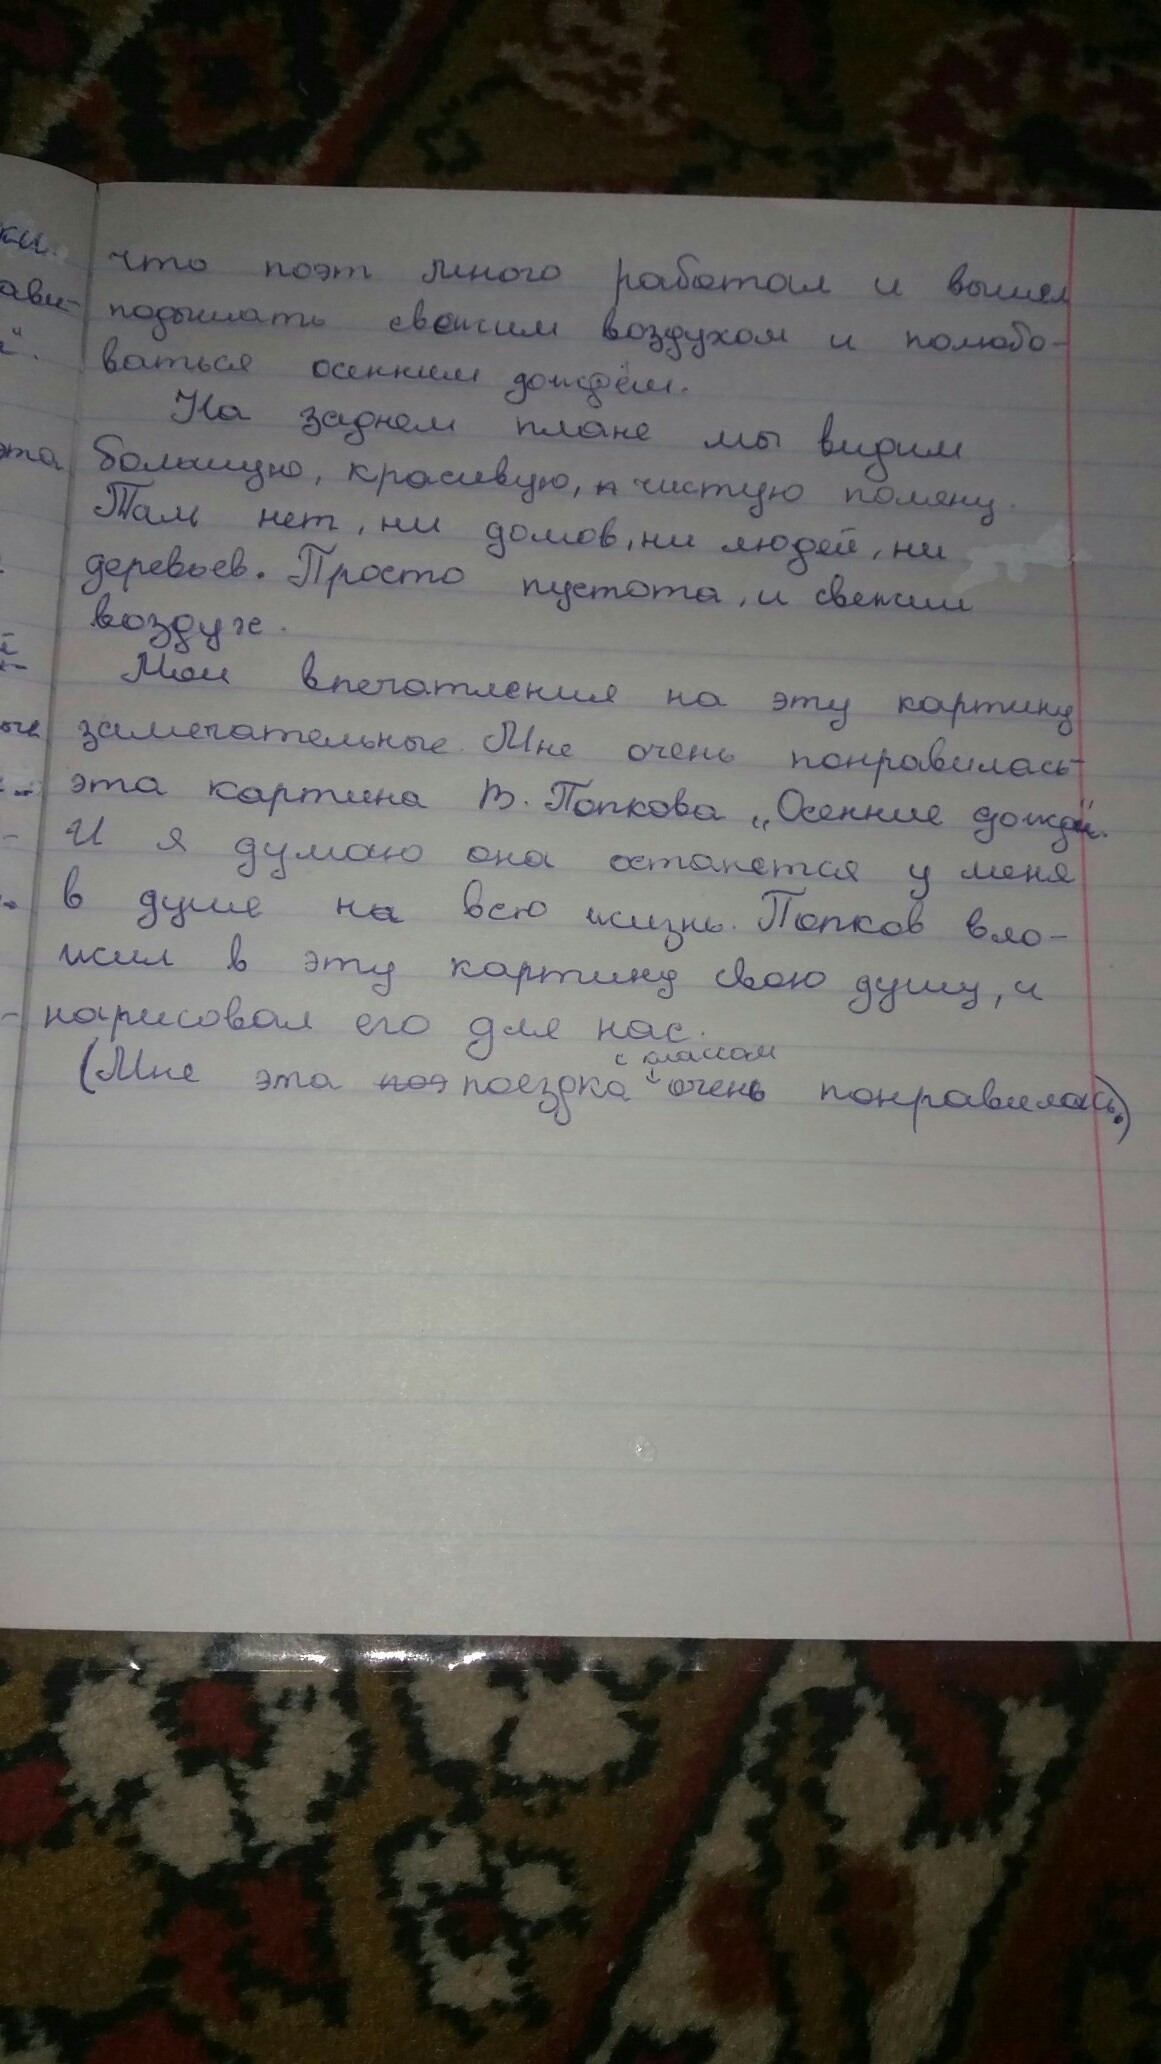 что поэт много работал и вышел
подышать свежим воздухом и полюбо-
ваться осенним дождём.
На заднем плане мы видим
эта большую, красивую, чистую поляну.
Там нет, ни домов, ни людей, ни
деревьев. Просто пустота, и свежий
воздух.
Мои впечатления на эту картину
замечательные. Мне очень понравилась
эта картина В. Попкова „Осенние дожди".
И я думаю она останется у меня
в душе на всю жизнь. Попков вло-
жил в эту картину свою душу, и
нарисовал его для нас.
с классом
(Мне эта поездка очень понравилась.)